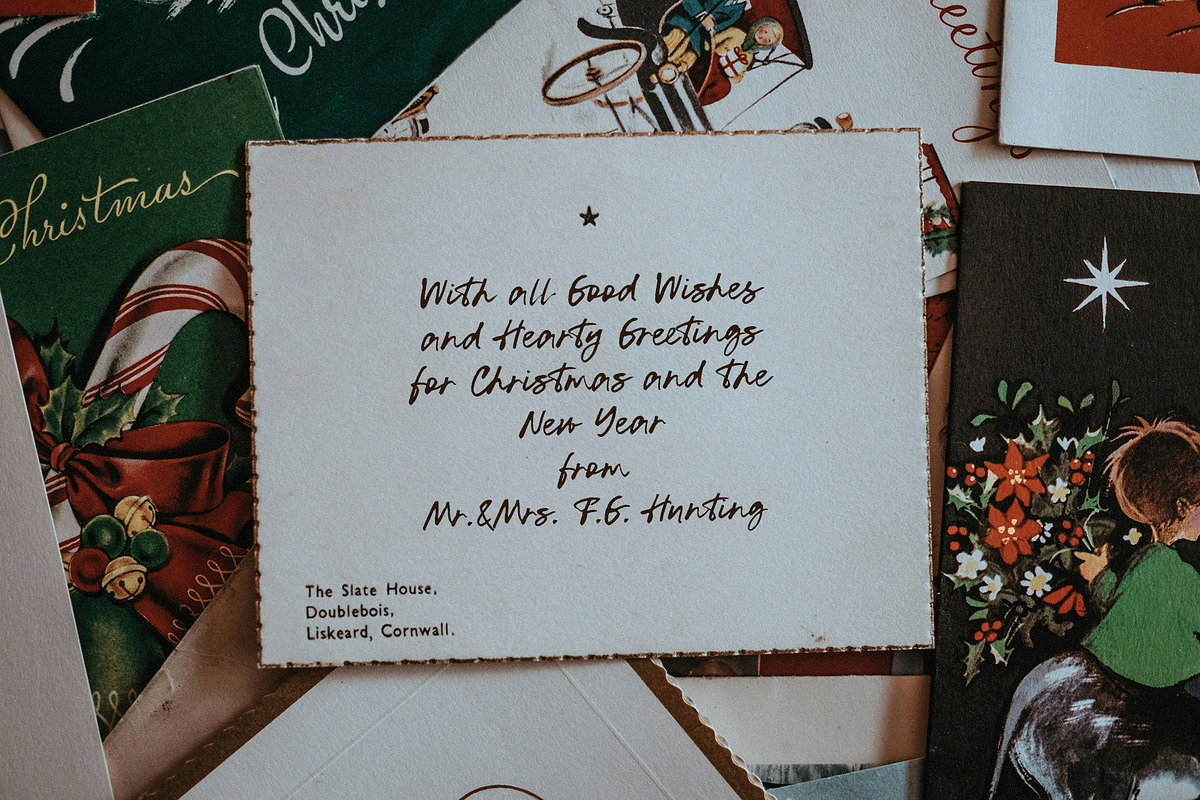 Christmas
With all Good Wishes
and Hearty Greetings
for Christmas and the
New Year
from
Mr.&Mrs. F.G. Hunting
The Slate House,
Doublebois,
Liskeard, Cornwall.